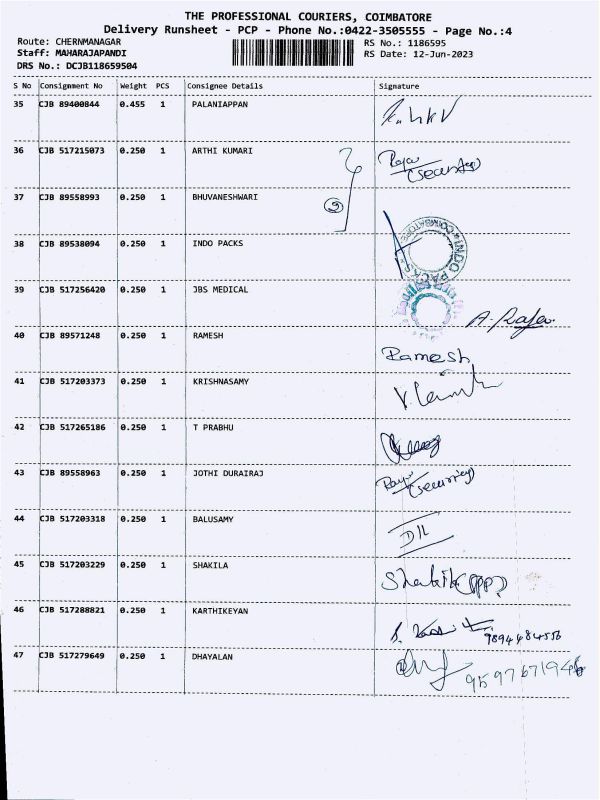 THE PROFESSIONAL COURIERS, COIMBATORE
Delivery Runsheet - PCP - Phone No.:0422-3505555 - Page No.:4
Route: CHERNMANAGAR RS No.: 1186595
Staff: MAHARAJAPANDI RS Date: 12-Jun-2023
DRS No.: DCJB118659504
S No Consignment No Weight PCS Consignee Details Signature
35 CJB 89400844 0.455 1 PALANIAPPAN
36 CJB 517215073 0.250 1 ARTHI KUMARI Raja
(Security)
37 CJB 89558993 0.250 1 BHUVANESHWARI
38 CJB 89538094 0.250 1 INDO PACKS INDO PACKS COIMBATORE
39 CJB 517256420 0.250 1 JBS MEDICAL A. Raja
40 CJB 89571248 0.250 1 RAMESH Ramesh
41 CJB 517203373 0.250 1 KRISHNASAMY
42 CJB 517265186 0.250 1 T PRABHU
43 CJB 89558963 0.250 1 JOTHI DURAIRAJ (Security)
44 CJB 517203318 0.250 1 BALUSAMY
45 CJB 517203229 0.250 1 SHAKILA
46 CJB 517288821 0.250 1 KARTHIKEYAN
47 CJB 517279649 0.250 1 DHAYALAN